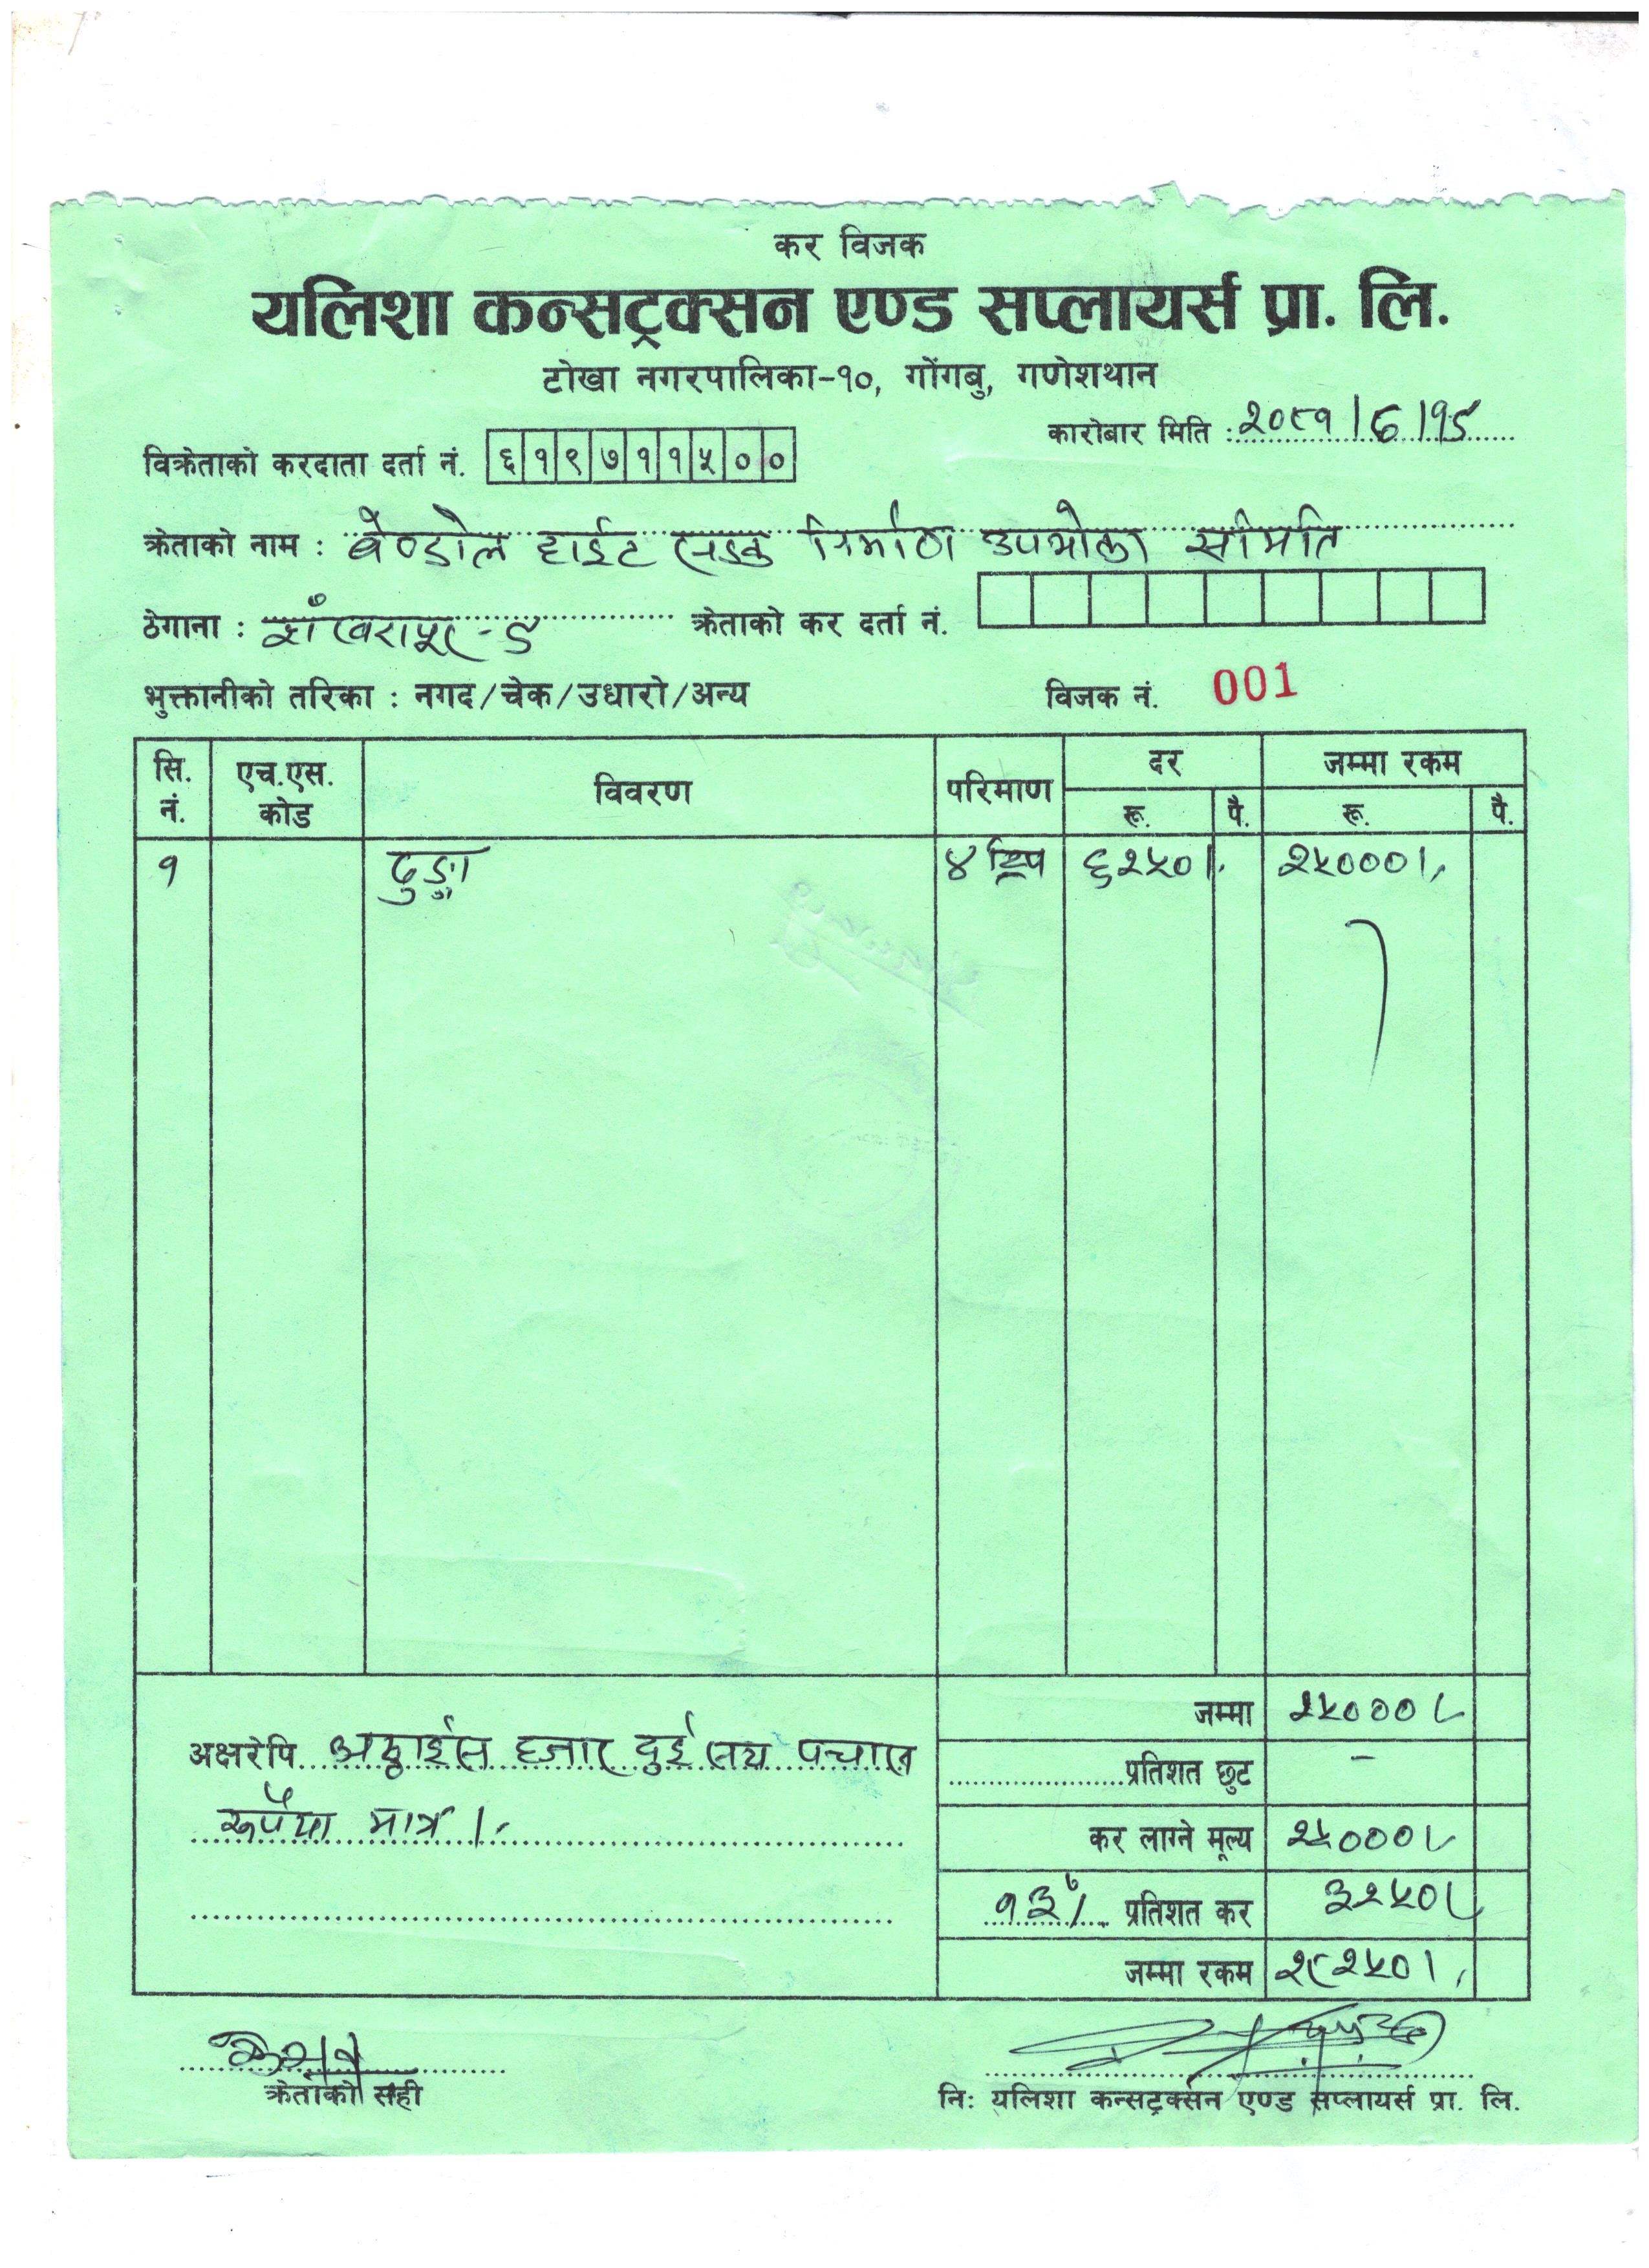 कर विजक
यलिशा कन्सट्रक्सन एण्ड सप्लायर्स प्रा. लि.
टोखा नगरपालिका-१०, गोंगबु, गणेशथान
कारोबार मिति : २०८१/6/१८
विक्रेताको करदाता दर्ता नं. ६१९७११५००
क्रेताको नाम : वेण्डोल हाईट सडक निर्माण उपभोक्ता समिति
ठेगाना : शंखरापुर-८ क्रेताको कर दर्ता नं.
भुक्तानीको तरिका : नगद/चेक/उधारो/अन्य विजक नं. 001
सि. नं. एच.एस. कोड विवरण परिमाण दर जम्मा रकम
रू. पै. रू. पै.
१ ढुङ्गा ४ ट्रिप ६२५०/- २५०००/-
जम्मा २५०००/-
अक्षरेपि अठ्ठाईस हजार दुई सय पचास
रुपैया मात्र ।-
प्रतिशत छुट -
कर लाग्ने मूल्य २५०००/-
१३% प्रतिशत कर ३२५०/-
जम्मा रकम २८२५०/-
क्रेताको सही
निः यलिशा कन्सट्रर्क्सन एण्ड सप्लायर्स प्रा. लि.